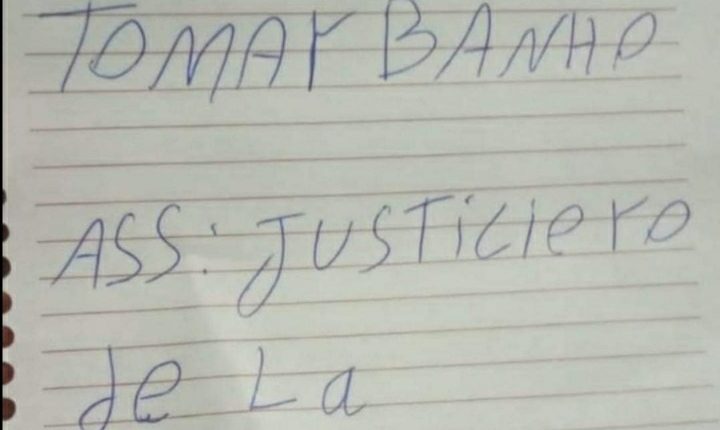 TOMAr BANHO
ASS: JUSTiCieRO
de La